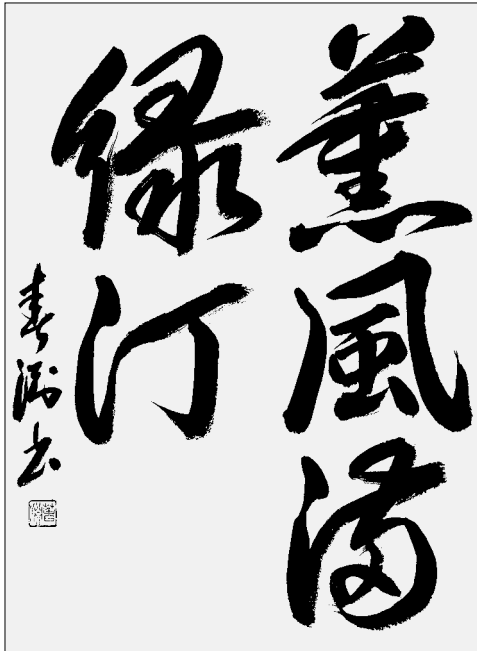 薫風満
緑汀
春澍書